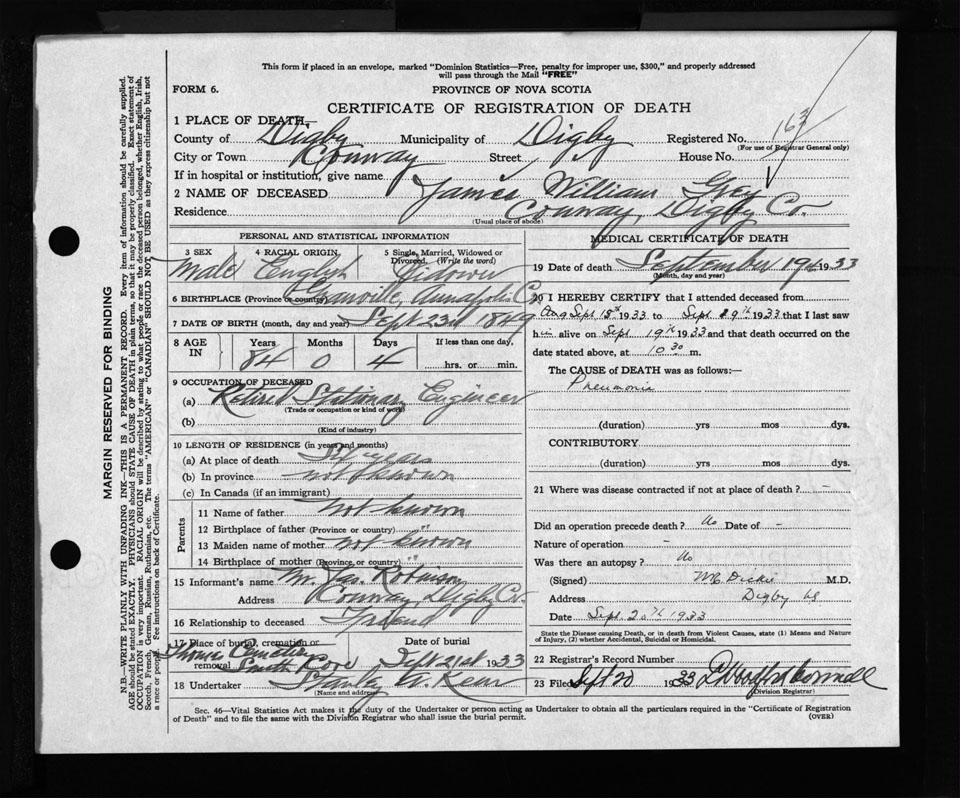 This form if placed in an envelope, marked "Dominion Statistics—Free, penalty for improper use, $300," and properly addressed
will pass through the Mail "FREE"
FORM 6.
PROVINCE OF NOVA SCOTIA
CERTIFICATE OF REGISTRATION OF DEATH
1 PLACE OF DEATH—
County of Digby Municipality of Digby Registered No. 163
(For use of Registrar General only)
City or Town Conway Street House No.
If in hospital or institution, give name
2 NAME OF DECEASED James William Grey
Residence Conway, Digby Co.
(Usual place of abode)
PERSONAL AND STATISTICAL INFORMATION
3 SEX 4 RACIAL ORIGIN 5 Single, Married, Widowed or
Divorced. (Write the word)
Male English Widower
6 BIRTHPLACE (Province or country) Granville, Annapolis Co.
7 DATE OF BIRTH (month, day and year) Sept 23rd 1849
8 AGE IN Years Months Days If less than one day,
84 0 4 hrs. or min.
9 OCCUPATION OF DECEASED
(a) Retired Stationary Engineer
(Trade or occupation or kind of work)
(b)
(Kind of industry)
10 LENGTH OF RESIDENCE (in years and months)
(a) At place of death years
(b) In province not known
(c) In Canada (if an immigrant)
Parents
11 Name of father not known
12 Birthplace of father (Province or country) "
13 Maiden name of mother not known
14 Birthplace of mother (Province or country) "
15 Informant's name Mr. Jas. Robinson
Address Conway, Digby Co.
16 Relationship to deceased Friend
17 Place of burial, cremation or
removal Date of burial
Cemetery
Cove Sept 21st 1933
18 Undertaker Stanley
(Name and address)
MEDICAL CERTIFICATE OF DEATH
19 Date of death September 19th 1933
(Month, day and year)
20 I HEREBY CERTIFY that I attended deceased from
Sept 1933 to Sept 1933 that I last saw
him alive on Sept 19th 1933 and that death occurred on the
date stated above, at 10 30 m.
The CAUSE of DEATH was as follows:—
Pneumonia
(duration) yrs mos dys.
CONTRIBUTORY
(duration) yrs mos dys.
21 Where was disease contracted if not at place of death? –
Did an operation precede death? No Date of –
Nature of operation –
Was there an autopsy? No
(Signed) Dickie M.D.
Address Digby NS
Date Sept. 20th 1933
State the Disease causing Death, or in death from Violent Causes, state (1) Means and Nature
of Injury, (2) whether Accidental, Suicidal or Homicidal.
22 Registrar's Record Number
23 Filed Sept 20 1933
(Division Registrar)
Sec. 46—Vital Statistics Act makes it the duty of the Undertaker or person acting as Undertaker to obtain all the particulars required in the "Certificate of Registration
of Death" and to file the same with the Division Registrar who shall issue the burial permit.
(OVER)
MARGIN RESERVED FOR BINDING
N.B.—WRITE PLAINLY WITH UNFADING INK—THIS IS A PERMANENT RECORD. Every item of information should be carefully supplied.
AGE should be stated EXACTLY. PHYSICIANS should STATE CAUSE OF DEATH in plain terms, so that it may be properly classified. Exact statement of
OCCUPATION is very important. RACIAL ORIGIN will be described by stating to what people or race the deceased person belonged, whether English, Irish,
Scotch, French, German, Russian, Ruthenian, etc. The terms "AMERICAN" or "CANADIAN" SHOULD NOT BE USED as they express citizenship but not
a race or people. See instructions on back of Certificate.